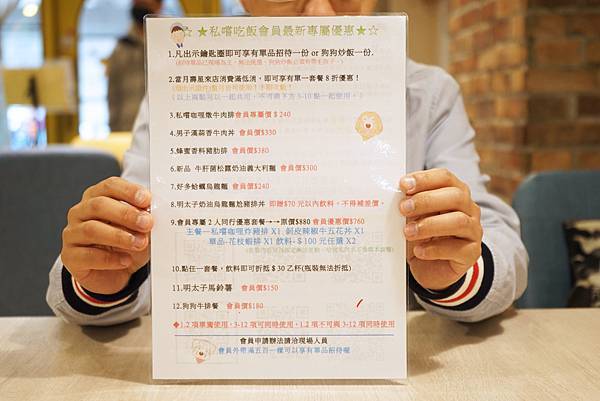 ☆ ★私嚐吃飯會員最新專屬優惠★☆
1.凡出示鑰匙圈即可享有單品招待一份 or 狗狗炒飯一份.
2.當月壽星來店消費滿低消，即可享有單一套餐 8 折優惠！
(以上兩點可以一起共用，不可與下方 3-10 點一起使用。)
3.私嚐咖哩燉牛肉排 會員專屬價$240
4.男子漢蒜香牛肉丼 會員價$330
5.蜂蜜香料豬肋排 會員價$380
6.新品 牛肝菌松露奶油義大利麵 會員價$300
7.好多蛤蠣烏龍麵 會員價$240
8.明太子奶油烏龍麵尬豬排丼 即贈$70 元以內飲料，不得補差價。
9.會員專屬 2 人同行優惠套餐→→原價$880 會員優惠價$760
主餐-私嚐咖哩炸豬排 X1 剝皮辣椒牛五花丼 X1
單品-花枝蝦排 X1 飲料-$100 元任選 X2
10.點任一套餐，飲料即可折抵$30 乙杯(瓶裝無法折抵)
11.明太子馬鈴薯 會員價$150
12.狗狗牛排餐 會員價$180
◆1.2 項單獨使用，3-12 項可同時使用，1.2 項不可與 3-12 項同時使用
會員申請辦法請洽現場人員
會員外帶滿五百一樣可以享有單品招待喔